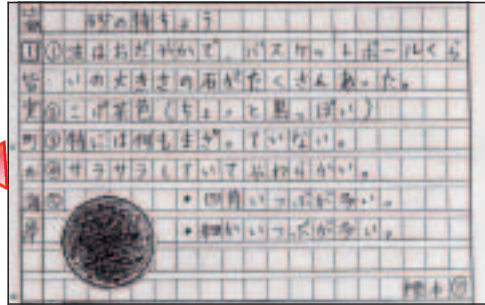 砂の特ちょう
①波はおだやかで、バスケットボールくら
いの大きさの石がたくさんあった。
②こげ茶色(ちょっと黒っぽい)
③特には何もまざっていない。
④サラサラしていてやわらかい。
⑤
・四角いつぶが多い。
・細かいつぶが多い。
標本①